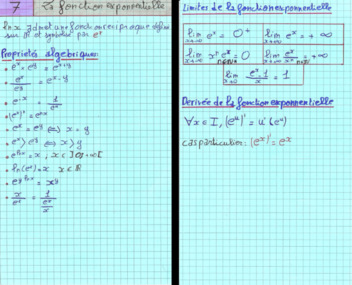 7 La fonction exponentielle
ln x admet une fonction réciproque définie
sur ℝ et symbole par eˣ
Propriétés algébriques
• eˣ × eʸ = eˣ⁺ʸ
• eˣ/eʸ = eˣ⁻ʸ
• e⁻ˣ = 1/eˣ
• (eˣ)ⁿ = eⁿˣ
• eˣ = eʸ ⟺ x = y
• eˣ > eʸ ⟺ x > y
• eˡⁿˣ = x, x ∈ ]0, +∞[
• ln(eˣ) = x x ∈ ℝ
• eʸ ˡⁿˣ = xʸ
• x/eˣ = 1/(eˣ/x)
Limites de la fonction exponentielle
lim eˣ = 0⁺ lim eˣ = +∞
x→-∞ x→+∞
lim xⁿ eˣ = 0 lim eˣ/xⁿ = +∞
x→-∞ x→+∞
lim (eˣ-1)/x = 1
x→0
Derivée de la fonction exponnentielle
∀x ∈ I, (eᵘ)' = u' (eᵘ)
cas particulier: (eˣ)' = eˣ